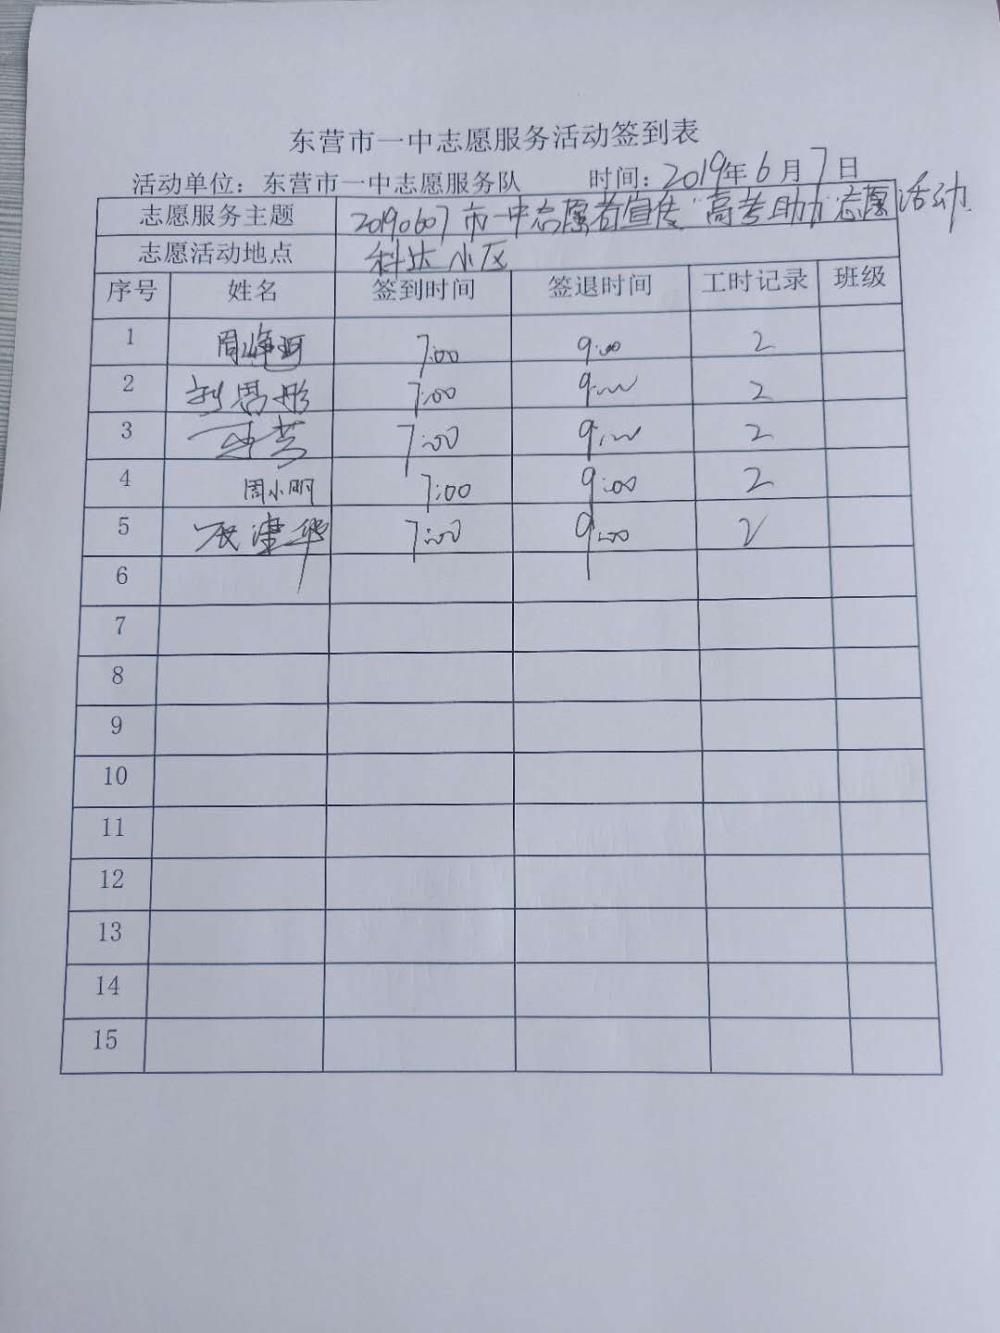 东营市一中志愿服务活动签到表
活动单位：东营市一中志愿服务队 时间：2019年6月7日
志愿服务主题 20190607市一中志愿者宣传“高考助力”志愿活动
志愿活动地点 科达小区
序号 姓名 签到时间 签退时间 工时记录 班级
1 周峥珂 7:00 9:00 2
2 刘思彤 7:00 9:00 2
3 7:00 9:00 2
4 周小明 7:00 9:00 2
5 津华 7:00 9:00 2
6
7
8
9
10
11
12
13
14
15